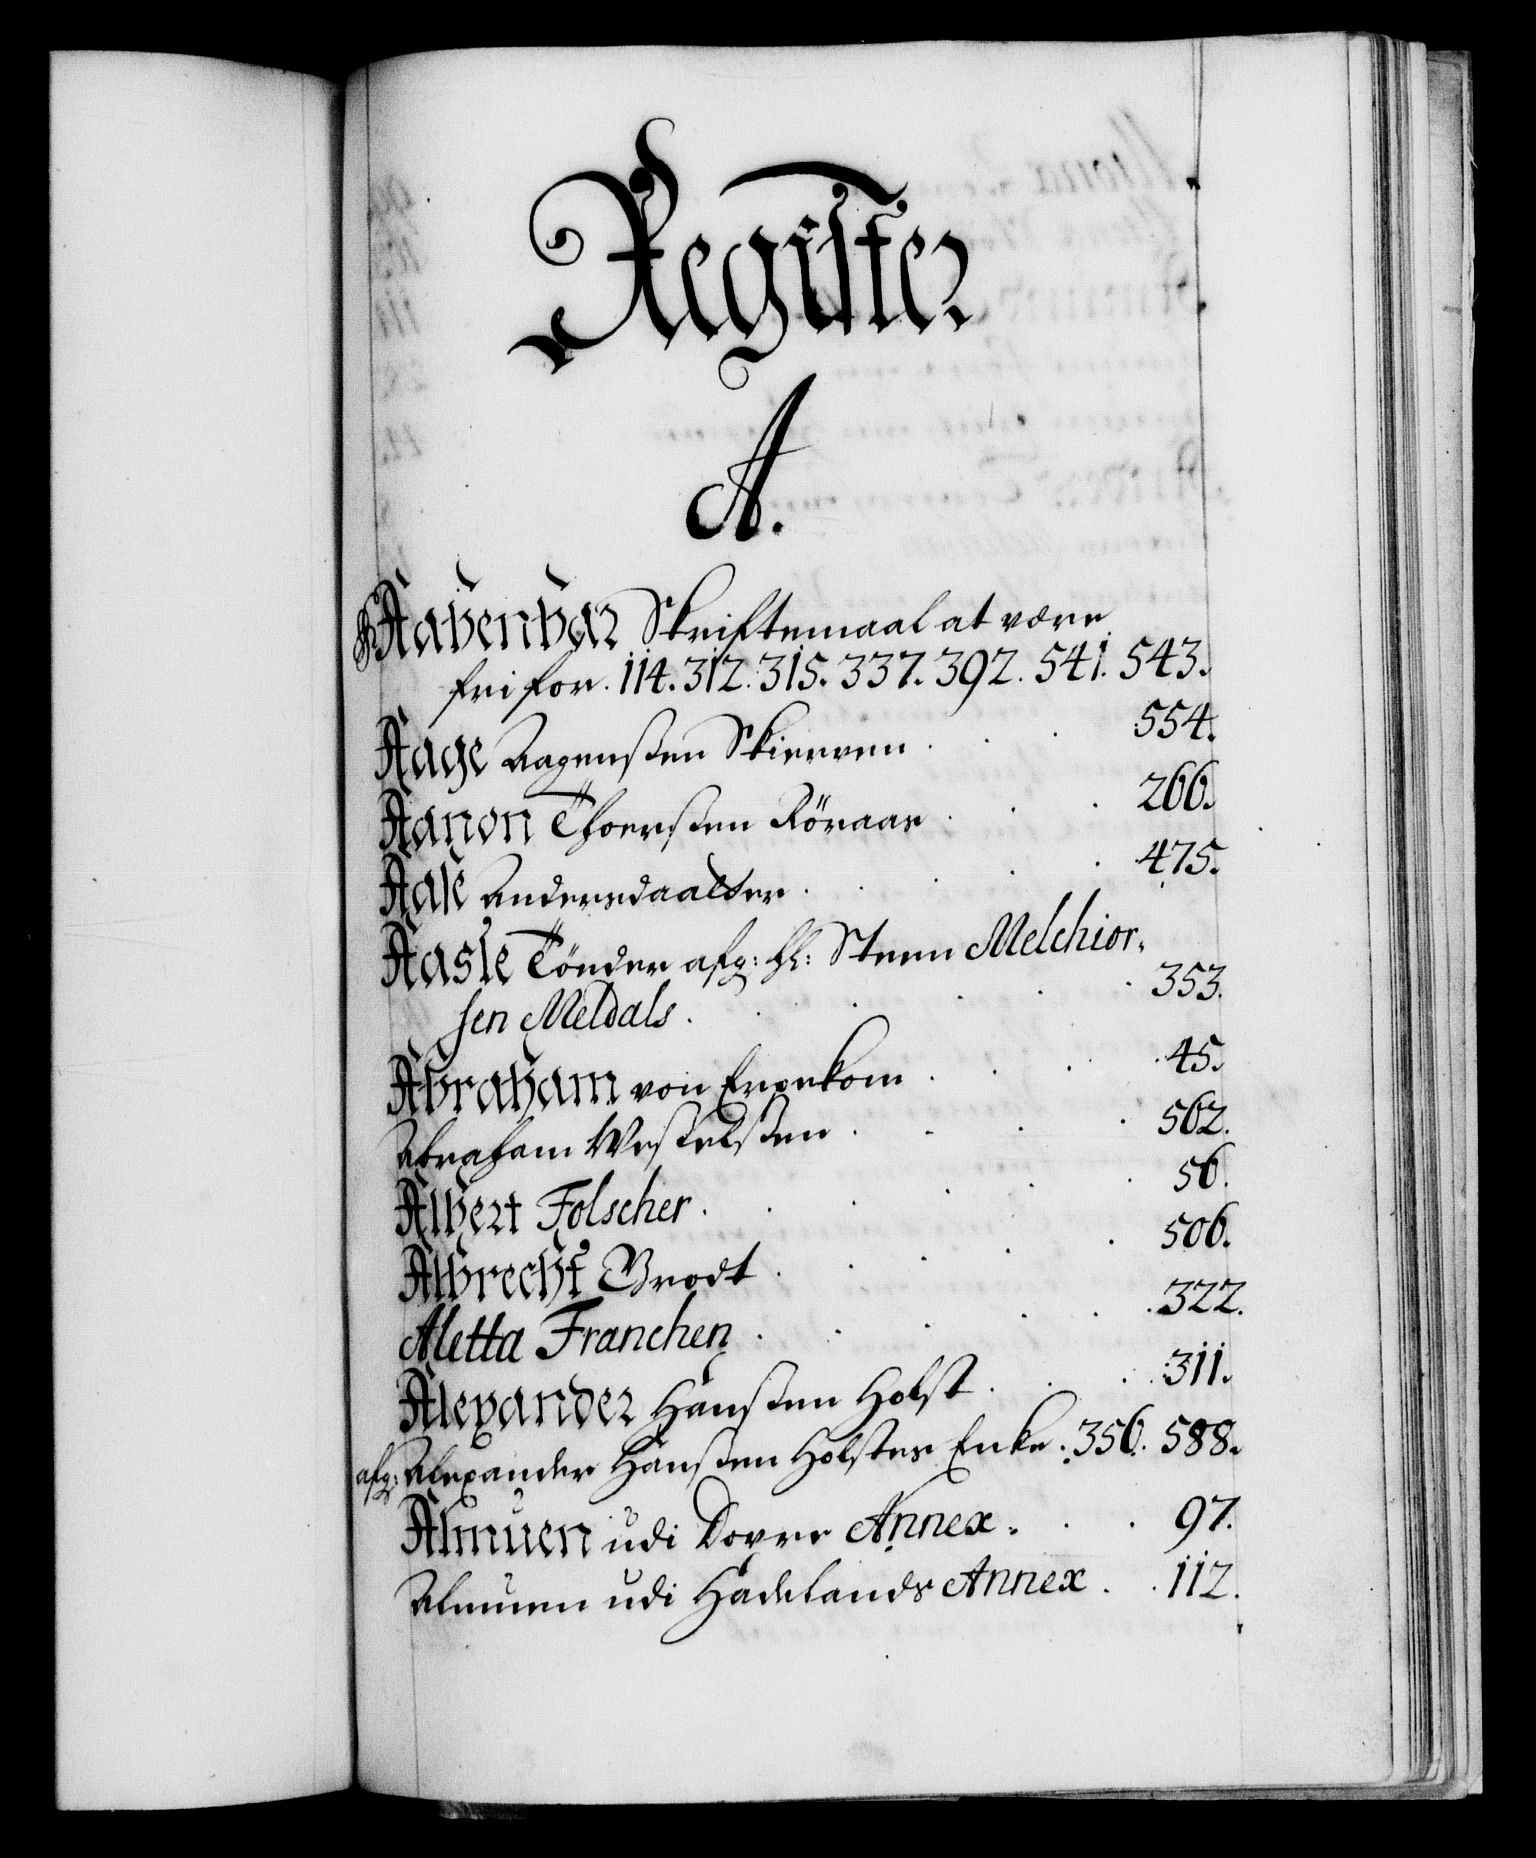 Register
A.
Aabenbar Skriftemaal at være
fri for. 114. 312. 315. 337. 392. 541. 543.
Aage Aagenssen Skierven . . . 554.
Aanon Thoerssen Röraas . . . 266.
Aase Andersdaatter . . . . 475.
Aasle Tönder afg: Hl: Steen Melchior-
sen Meldals . . . . . . 353.
Abraham von Erpekom . . . . 45.
Abraham Wesselssen . . . . 562.
Albert Folscher . . . . . 56.
Albrecht Brodt . . . . . 506.
Aletta Franchen . . . . . 322.
Alexander Hanssen Holst . . . 311.
afg: Alexander Hanssen Holstes Enke . 356. 588.
Almuen udi Dovre Annex . . . 97.
Almuen udi Hadelands Annex . . 112.